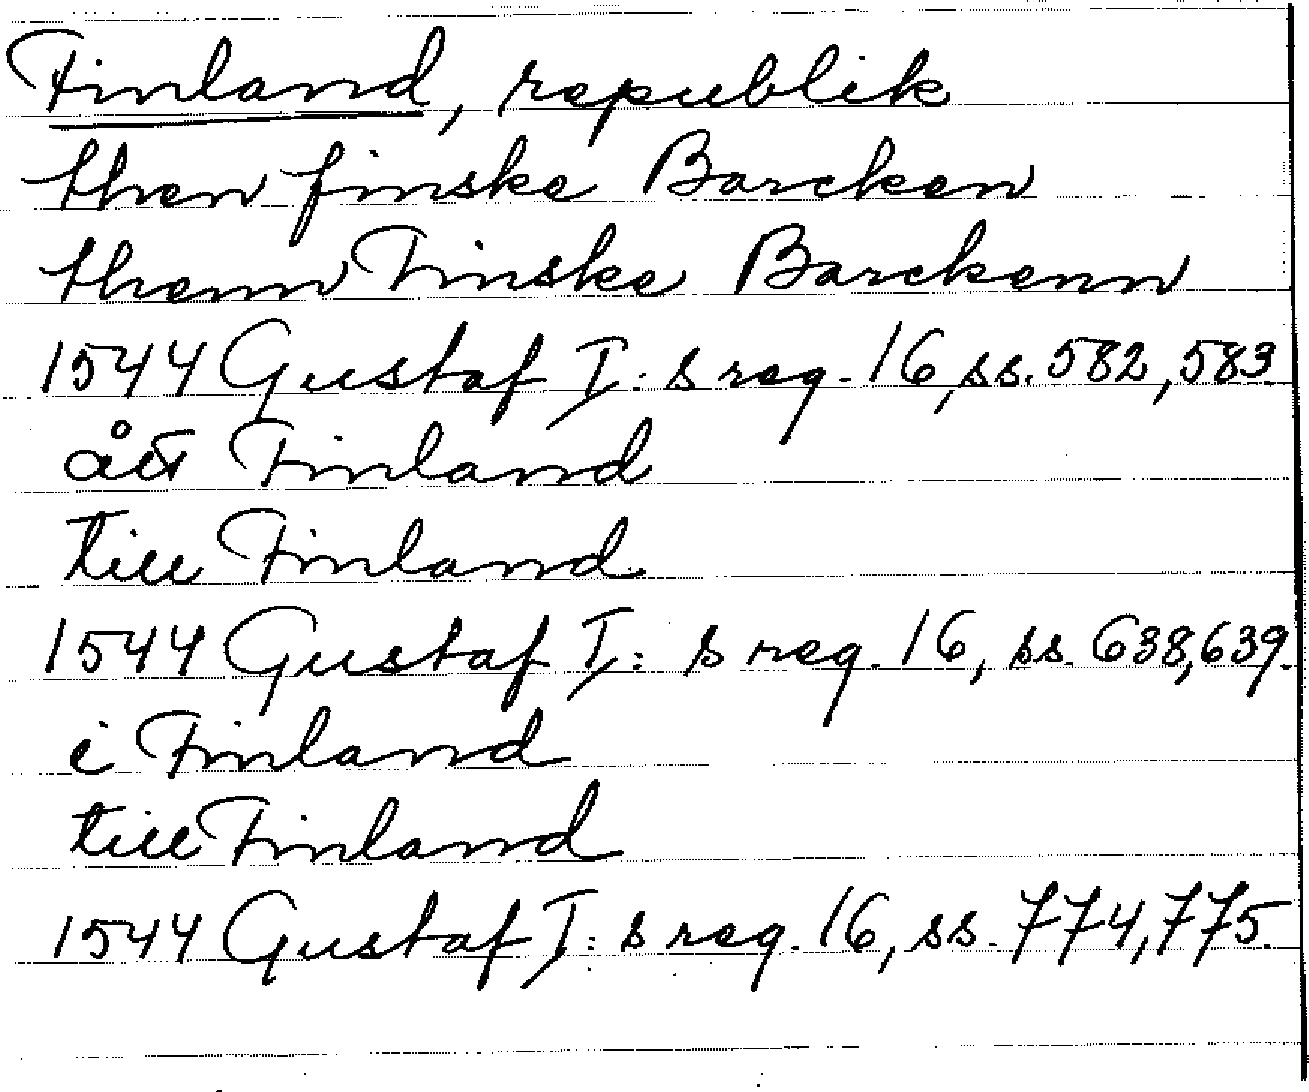 Finland, republik
then finske Barcken
thenn Finske Barckenn
1544 Gustaf I: s reg. 16, ss. 582, 583
ått Finland
till Finland
1544 Gustaf I: s reg. 16, ss. 638, 639.
i Finland
till Finland
1544 Gustaf I: s reg. 16, ss. 774, 775.